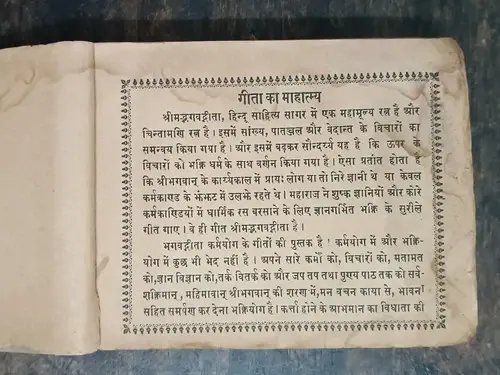 गीता का माहात्म्य
श्रीमद्भगवद्गीता, हिन्दू साहित्य सागर में एक महामूल्य रत्न है और
चिन्तामणि रत्न है। इसमें सांख्य, पातञ्जल और वेदान्त के विचारों का
समन्वय किया गया है। और इसमें बढ़कर सौन्दर्य्य यह है कि ऊपर के
विचारों को भक्ति धर्म के साथ वर्णन किया गया है। ऐसा प्रतीत होता है
कि श्रीभगवान् के कार्य्यकाल में प्रायः लोग या तो निरे ज्ञानी थे या केवल
कर्मकाण्ड के झंझट में उलझे रहते थे। महाराज ने शुष्क ज्ञानियों और कोरे
कर्मकाण्डियों में धार्मिक रस बरसाने के लिए ज्ञानगर्भित भक्ति के सुरीले
गीत गाए। वे ही गीत श्रीमद्भगवद्गीता है।
भगवद्गीता कर्मयोग के गीतों की पुस्तक है! कर्मयोग में और भक्ति-
योग में कुछ भी भेद नहीं है। अपने सारे कर्मों को, विचारों को, मतामत
को, ज्ञान विज्ञान को, तर्क वितर्क को और जप तप तथा पुण्य पाठ तक को सर्व-
शक्तिमान्, महिमावान् श्रीभगवान् की शरण में, मन वचन काया से, भावना
सहित समर्पण कर देना भक्तियोग है। कर्त्ता होने के अभिमान का विधाता की